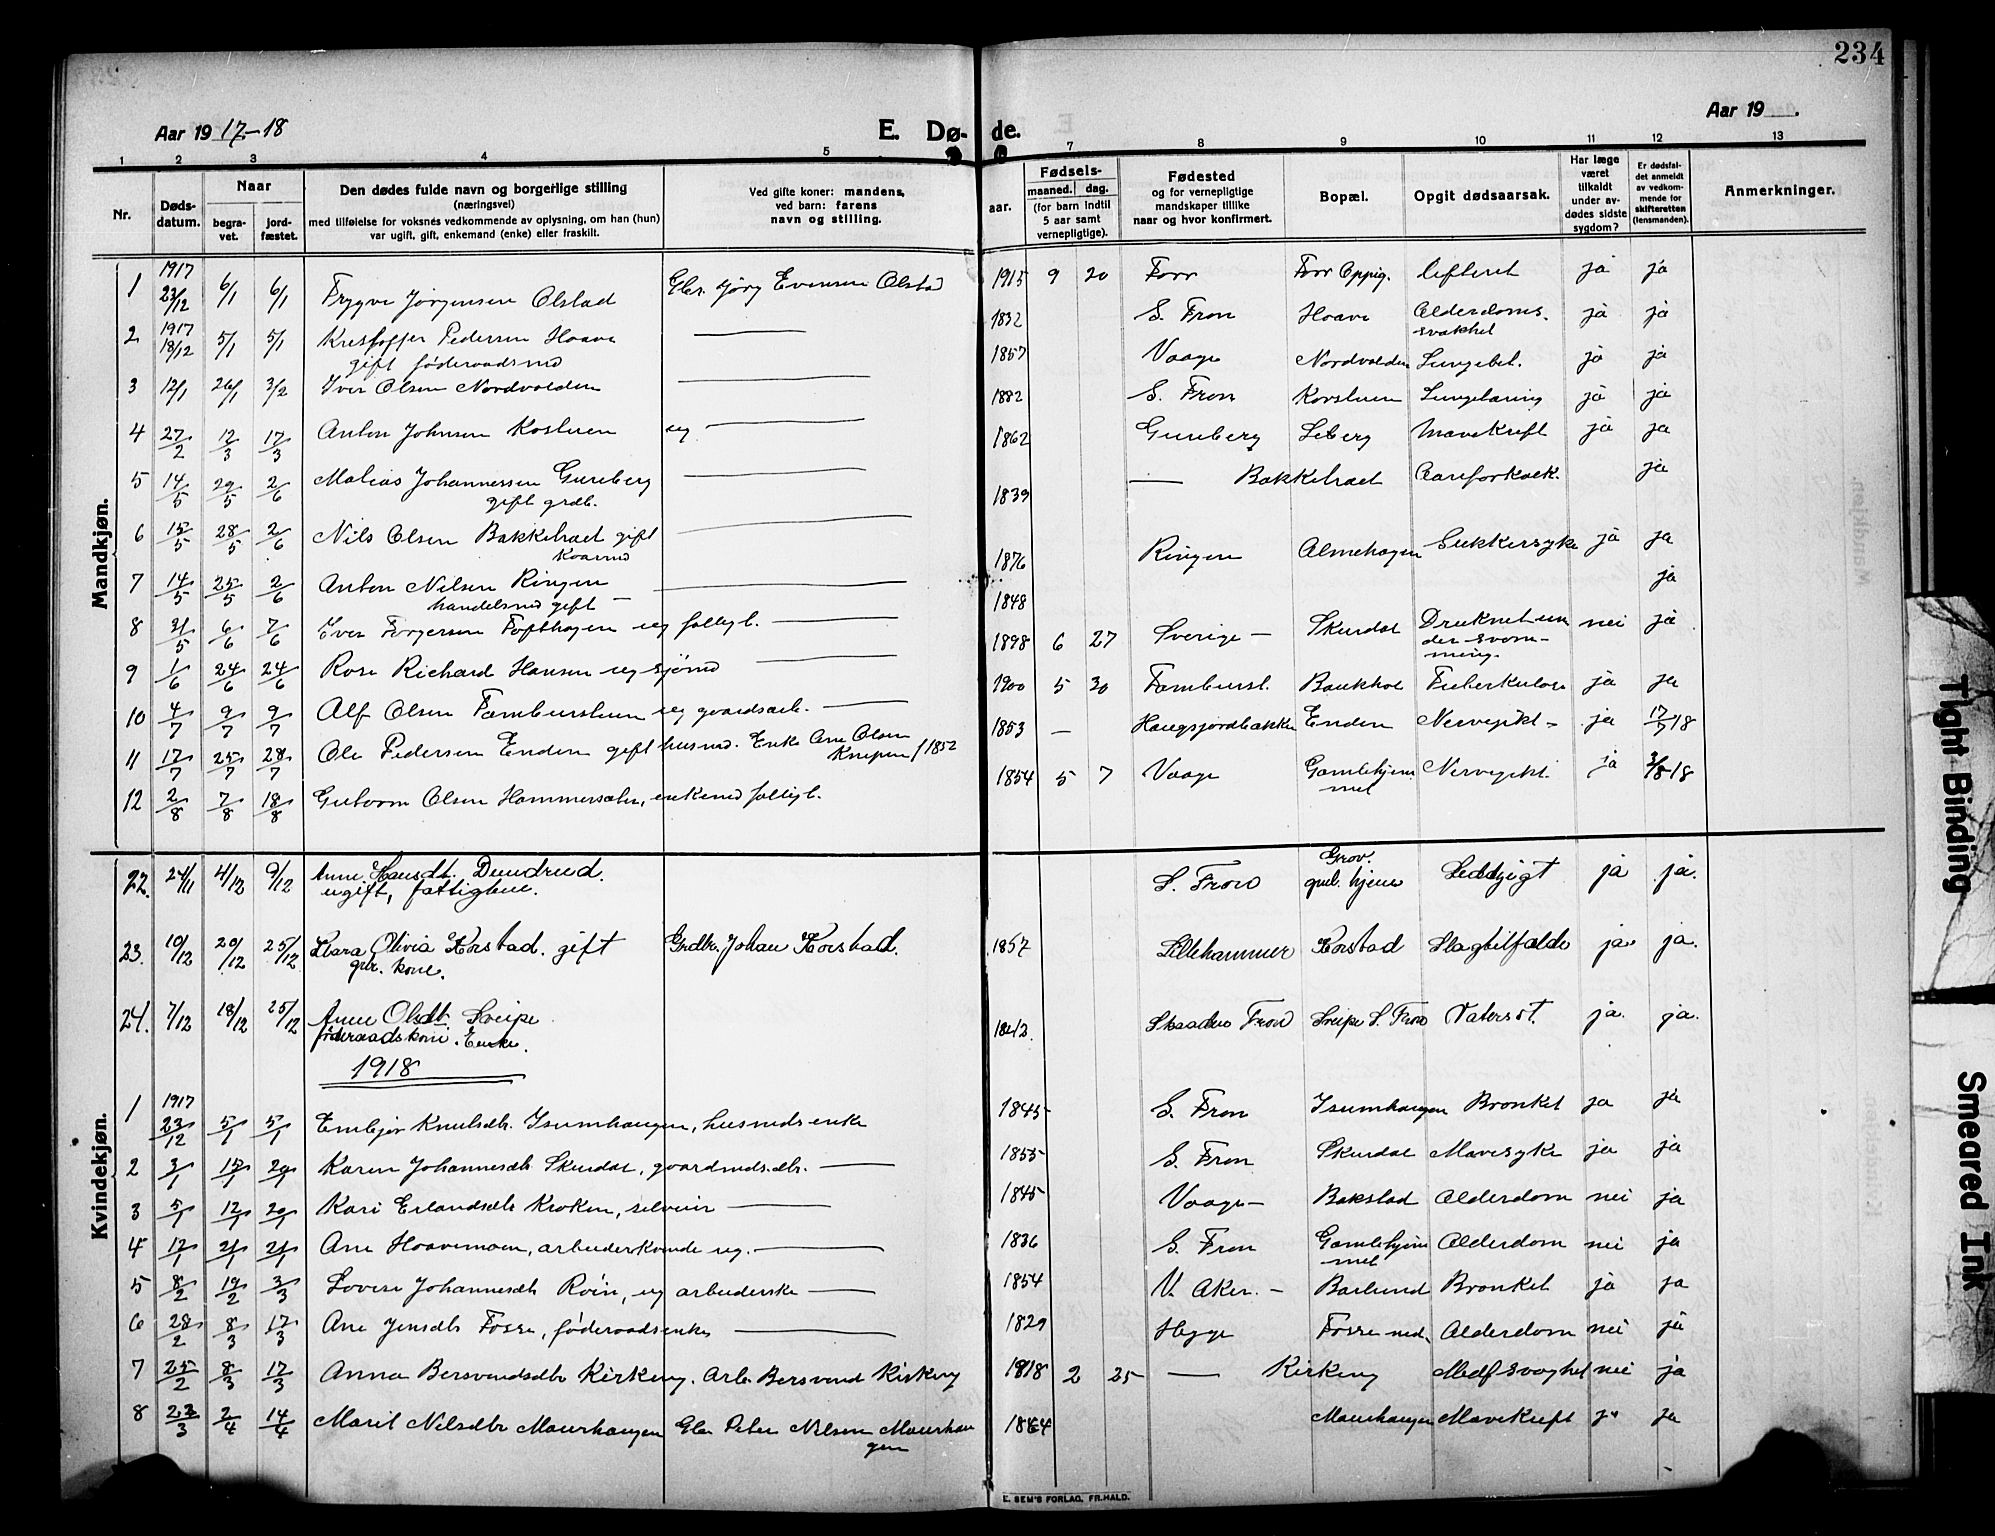 234
Aar 19 17-18
E. Dø- de.
Aar 19 .
1 2 3 4 5 7 8 9 10 11 12 13
Nr.
Døds-datum.
Naar
begra-vet.
jord-fæstet.
Den dødes fulde navn og borgerlige stilling
(næringsvei)
med tilføielse for voksnes vedkommende av oplysning, om han (hun)
var ugift, gift, enkemand (enke) eller fraskilt.
Ved gifte koner: mandens,
ved barn: farens
navn og stilling.
Fødsels-
aar.
maaned. dag.
(for barn indtil
5 aar samt
vernepligtige).
Fødested
og for vernepligtige
mandskaper tillike
naar og hvor konfirmert.
Bopæl.
Opgit dødsaarsak.
Har læge
været
tilkaldt
under av-
dødes sidste
sygdom?
Er dødsfal-
det anmeldt
av vedkom-
mende for
skifteretten
(lensmanden).
Anmerkninger.
Mandkjøn.
1 1917 23/12 6/1 6/1 Trygve Jørgensen Olstad Gbr. Jørg Evensen Olstad 1915 9 20 Forr Forr Oppig. ja ja
2 1917 18/12 5/1 5/1 Kristoffer Pedersen Hoave 1832 S. Fron Hoave Alderdoms- ja ja
gift føderaadsmd svakhet
3 12/1 26/1 3/2 Iver Olsen Nordvolden 1857 Vaage Nordvolden Lungebet. ja ja
4 27/2 12/3 17/3 Anton Johnsen Kosluen ug 1882 S. Fron Korsluen Lungetæring ja ja
5 14/5 29/5 2/6 Matias Johannessen Gunberg 1862 Gunberg Leberg Mavekreft ja ja
gift grdb.
6 15/5 28/5 2/6 Nils Olsen Bakkelraet gift 1839 — Bakkelraet Aareforkalk. ja
7 14/5 25/5 2/6 Anton Nilsen Ringen 1876 Ringen Almehagen Sukkersyke ja ja
handelsmd gift —
8 21/5 6/6 7/6 Iver Torgersen Tofthagen ug fattigl. 1848 ja
9 1/6 24/6 24/6 Rose Richard Hansen ug sjømd 1898 6 27 Sverige — Skurdal Druknet un nei ja
der svøm-
ming.
10 4/7 9/7 9/7 Alf Olsen Tomburstuen ug gaardsarb. 1900 5 30 Tomburst. Baukhol Tuberkulose ja ja
11 17/7 25/7 28/7 Ole Pedersen Enden gift husmd. Enke Ane Olsen 1853 — Haugsjordbakken Enden Nervegikt - ja 17/7 18
Knipen f 1852
12 2/8 7/8 18/8 Gutorm Olsen Hammersæter, enkemd fattigl. 1854 5 7 Vaage Gamlehjem ja 3/8 18
met Nervegikt.
Kvindekjøn.
22. 24/11 4/12 9/12 Anne Hansdt. Dundrud. S. Fron Grov. Leddgigt ja ja.
ugift, fattiglem. gml. hjem
23. 10/12 20/12 25/12 Klara Olivia Korstad. gift Grdbr. Johan Korstad. 1857 Lillehammer Korstad Slagtilfælde ja ja.
gbr. kone.
24. 7/12 18/12 25/12 Anne Olsdt. Sveipe Skaaden Fron Sveipe S. Fron Vatersot. ja. ja.
føderaadskone. Enke.
1918
1 1917 23/12 5/1 5/1 Embjør Knutsdt. Isumhaugen, husmds enke 1845 S. Fron Isumhaugen Bronkit ja ja
2 3/1 15/1 29/1 Karen Johannesdt Skurdal, gaardmdsdt. 1855 S. Fron Skurdal Mavesyke ja ja
3 5/1 12/1 29/1 Kari Erlandsdt Kroken, selveier 1845 Vaage — Bakstad Alderdom nei ja
4 17/1 21/1 21/1 Ane Hoavemoen, arbeiderkvinde ug. 1836 S. Fron Gamlehjem Alderdom nei ja
met
5 8/2 19/2 3/3 Lovise Johannesdt Roin, ug arbeiderske 1854 V. Aker. - Barlund Bronkit ja ja
6 28/2 8/3 17/3 Ane Jensdt Fosse, føderaadsenke 1829 Hegge Fosse ned. Alderdom nei ja
7 25/2 8/3 17/3 Anna Bersvendsdt Kirkeng. Arb. Bersvend Kirkeng 1818 2 25 — Kirkeng Medf svaghet nei ja
8 23/3 2/4 14/4 Marit Nilsdt Maurhaugen Gbr Peter Nilsen Maurhau 1864 Maurhaugen Mavekreft ja ja
gen
E. SEM'S FORLAG, FR.HALD.
Tight Binding
Smeared Ink